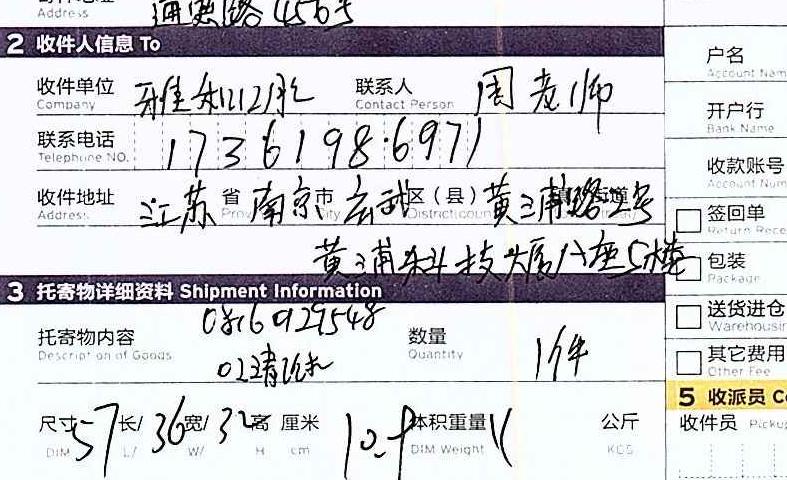 Address 通 路 456号
2 收件人信息 To
收件单位 Company 雅 联系人 Contact Person 周老师
联系电话 Telephone NO. 17361986971
收件地址 Address 江苏 省 南京 市 玄武 区（县） 黄浦路2号
黄浦科技大厦A座5楼
3 托寄物详细资料 Shipment Information
托寄物内容 Description of Goods 数量 Quantity 1件
尺寸 DIM 57 长/ L/ 36 宽/ W/ 32 高 H 厘米 cm 体积重量 DIM Weight 11 公斤 KGS
户名
Account Nam
开户行
Bank Name
收款账号
Account Num
签回单
Return Rece
包装
Package
送货进仓
Warehousin
其它费用
Other Fee
5 收派员 C
收件员 Picku